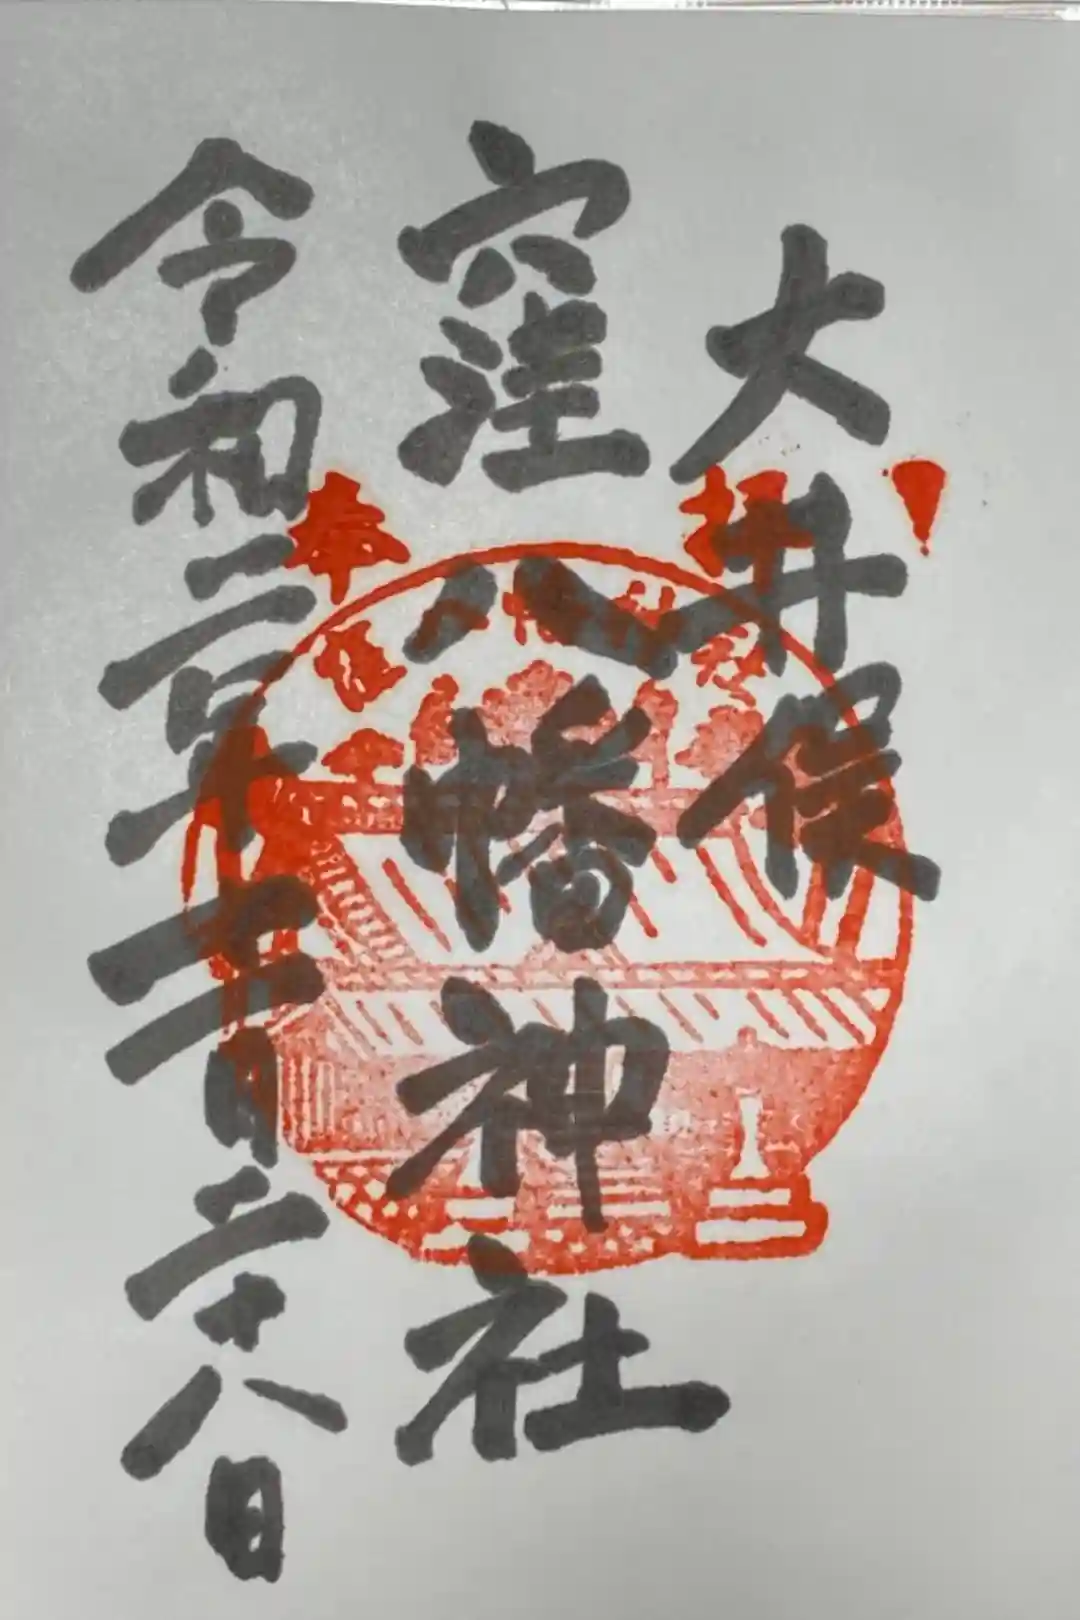 奉拝
大井俣
窪八幡神社
令和二年十一月二十八日